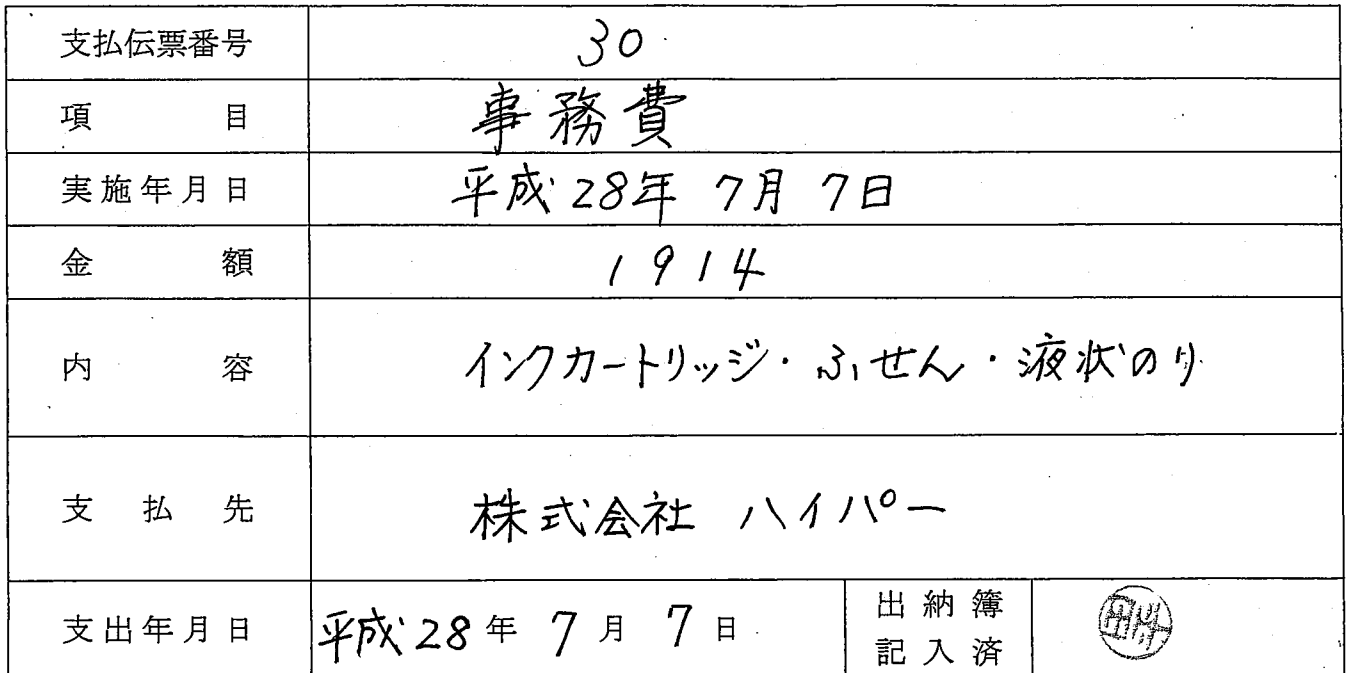 支払伝票番号 30
項目 事務費
実施年月日 平成28年 7月 7日
金額 1914
内容 インクカートリッジ・ふせん・液状のり
支払先 株式会社 ハイパー
支出年月日 平成28年 7月 7日 出納簿
記入済